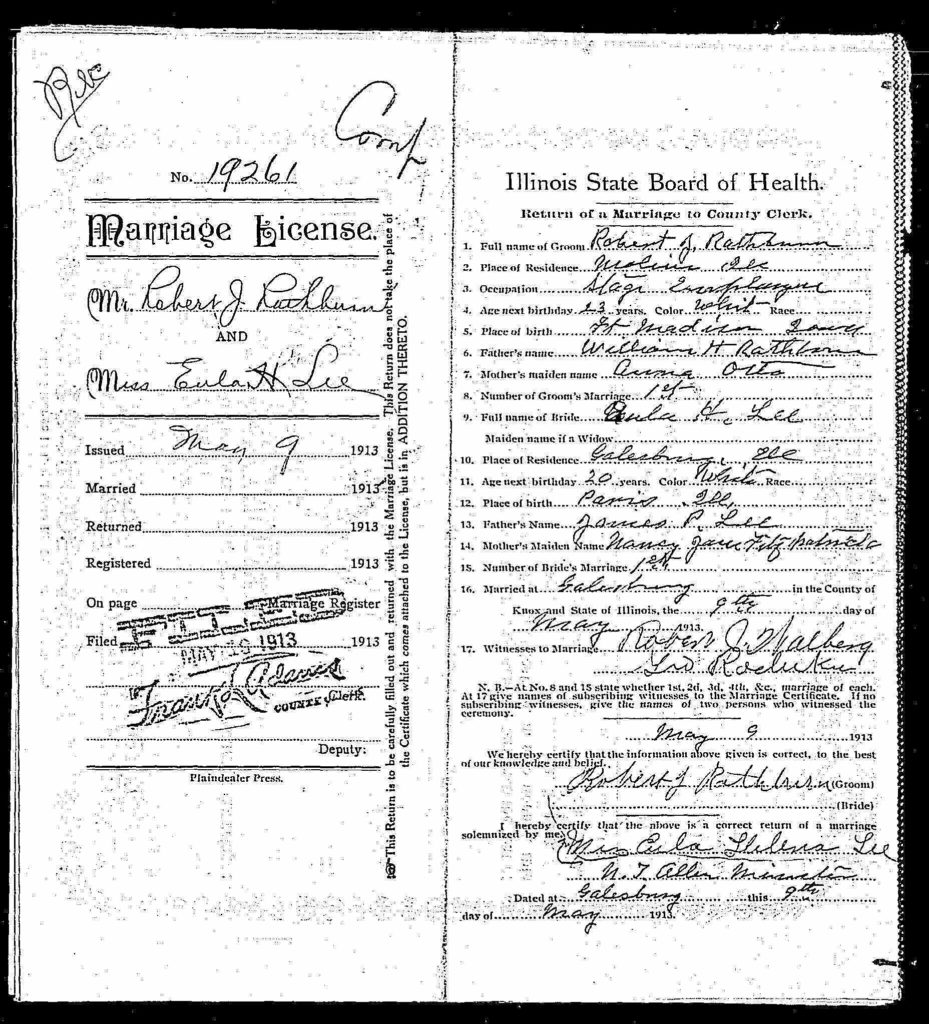 Rec
Comp
No. 19261
Marriage License.
Mr. Robert J. Rathbun
AND
Miss Eula H Lee
Issued May 9 1913
Married 1913
Returned 1913
Registered 1913
On page Marriage Register
Filed 1913
FILED
MAY 1913
Frank L Adams
COUNTY Clerk.
Deputy:
Plaindealer Press.
This Return is to be carefully filled out and returned with the Marriage License. This Return does not take the place of
the Certificate which comes attached to the License, but is in ADDITION THERETO.
Illinois State Board of Health.
Return of a Marriage to County Clerk.
1. Full name of Groom Robert J. Rathbun
2. Place of Residence Moline Ill
3. Occupation Stage Employee
4. Age next birthday 23 years. Color Whit Race
5. Place of birth Ft Madison Iowa
6. Father's name William H Rathbun
7. Mother's maiden name Anna Otto
8. Number of Groom's Marriage 1st
9. Full name of Bride Eula H. Lee
Maiden name if a Widow
10. Place of Residence Galesburg, Ill
11. Age next birthday 20 years. Color White Race
12. Place of birth Paris Ill,
13. Father's Name James P. Lee
14. Mother's Maiden Name Nancy Jane Fitzpatrick
15. Number of Bride's Marriage 1st
16. Married at Galesburg in the County of
Knox and State of Illinois, the 9th day of
May 1913.
17. Witnesses to Marriage Robert J. Walberg
Geo
N. B.—At No. 8 and 15 state whether 1st, 2d, 3d, 4th, &c., marriage of each.
At 17 give names of subscribing witnesses to the Marriage Certificate. If no
subscribing witnesses, give the names of two persons who witnessed the
ceremony.
May 9 1913
We hereby certify that the information above given is correct, to the best
of our knowledge and belief.
Robert J Rathbun (Groom)
(Bride)
I hereby certify that the above is a correct return of a marriage
solemnized by me,
Miss Eula Helena Lee
N. T. Allen Minister
Dated at Galesburg this 9th
day of May 1913.